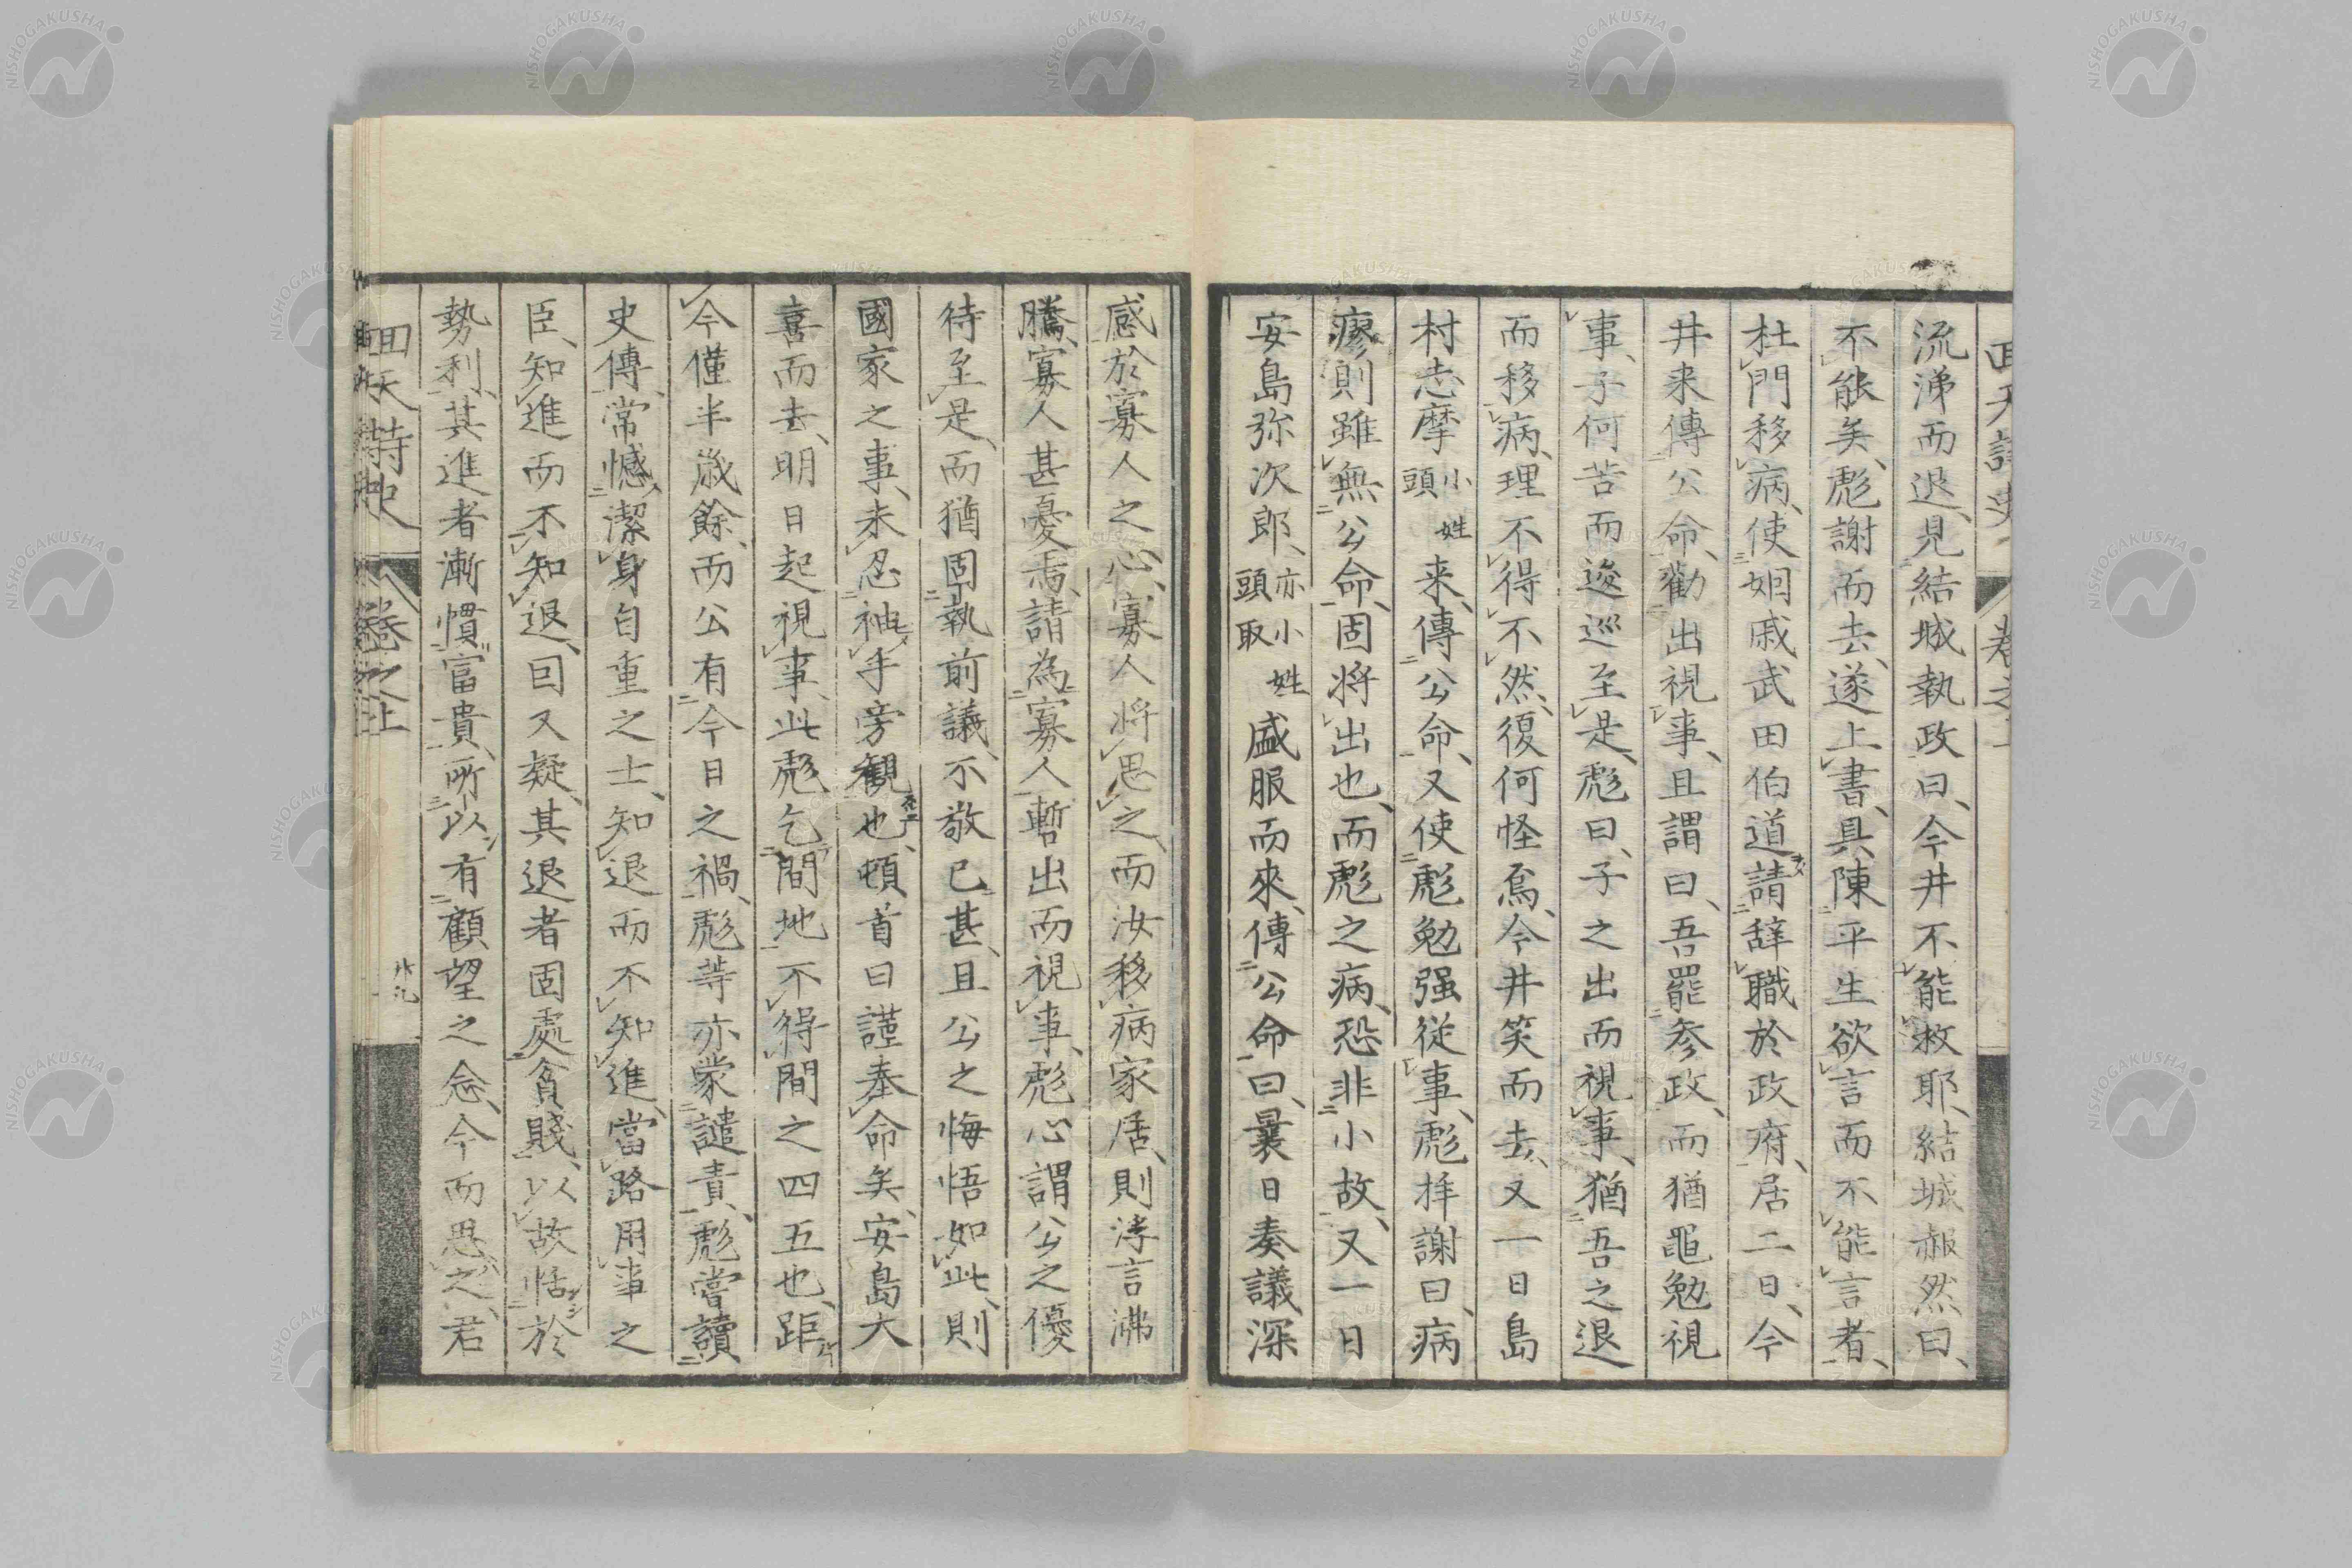 流涕而退、見結城執政曰、今井不能救耶、結城赧然曰、
不能矣、彪謝而去、遂上書、具陳平生欲言而不能言者、
杜門移病、使姻戚武田伯道請辞職於政府、居二日、今
井来傳公命、勸出視事、且謂曰、吾罷参政、而猶黽勉視
事、子何苦而逡巡至是、彪曰、子之出而視事、猶吾之退
而移病、理不得不然、復何怪焉、今井笑而去、又一日島
村志摩小姓頭来、傳公命、又使彪勉强従事、彪拝謝曰、病
瘳則雖無公命、固将出也、而彪之病、恐非小故、又一日
安島弥次郎、亦小姓頭取盛服而來、傳公命曰、曩日奏議、深
感於寡人之心、寡人将思之、而汝移病家居、則浮言沸
騰、寡人甚憂焉、請為寡人暫出而視事、彪心謂公之優
待至是、而猶固執前議、不敬已甚、且公之悔悟如此、則
國家之事、未忍袖手旁観也、頓首曰謹奉命矣、安島大
喜而去、明日起視事、此彪乞間地不得間之四五也、距
今僅半歳餘、而公有今日之禍、彪等亦蒙譴責、彪嘗讀
史傳、常憾潔身自重之士、知退而不知進、當路用事之
臣、知進而不知退、囙又疑、其退者固處貧賤、以故恬於
勢利、其進者漸慣富貴、所以有顧望之念、今而思之、君
回天詩史 卷之上